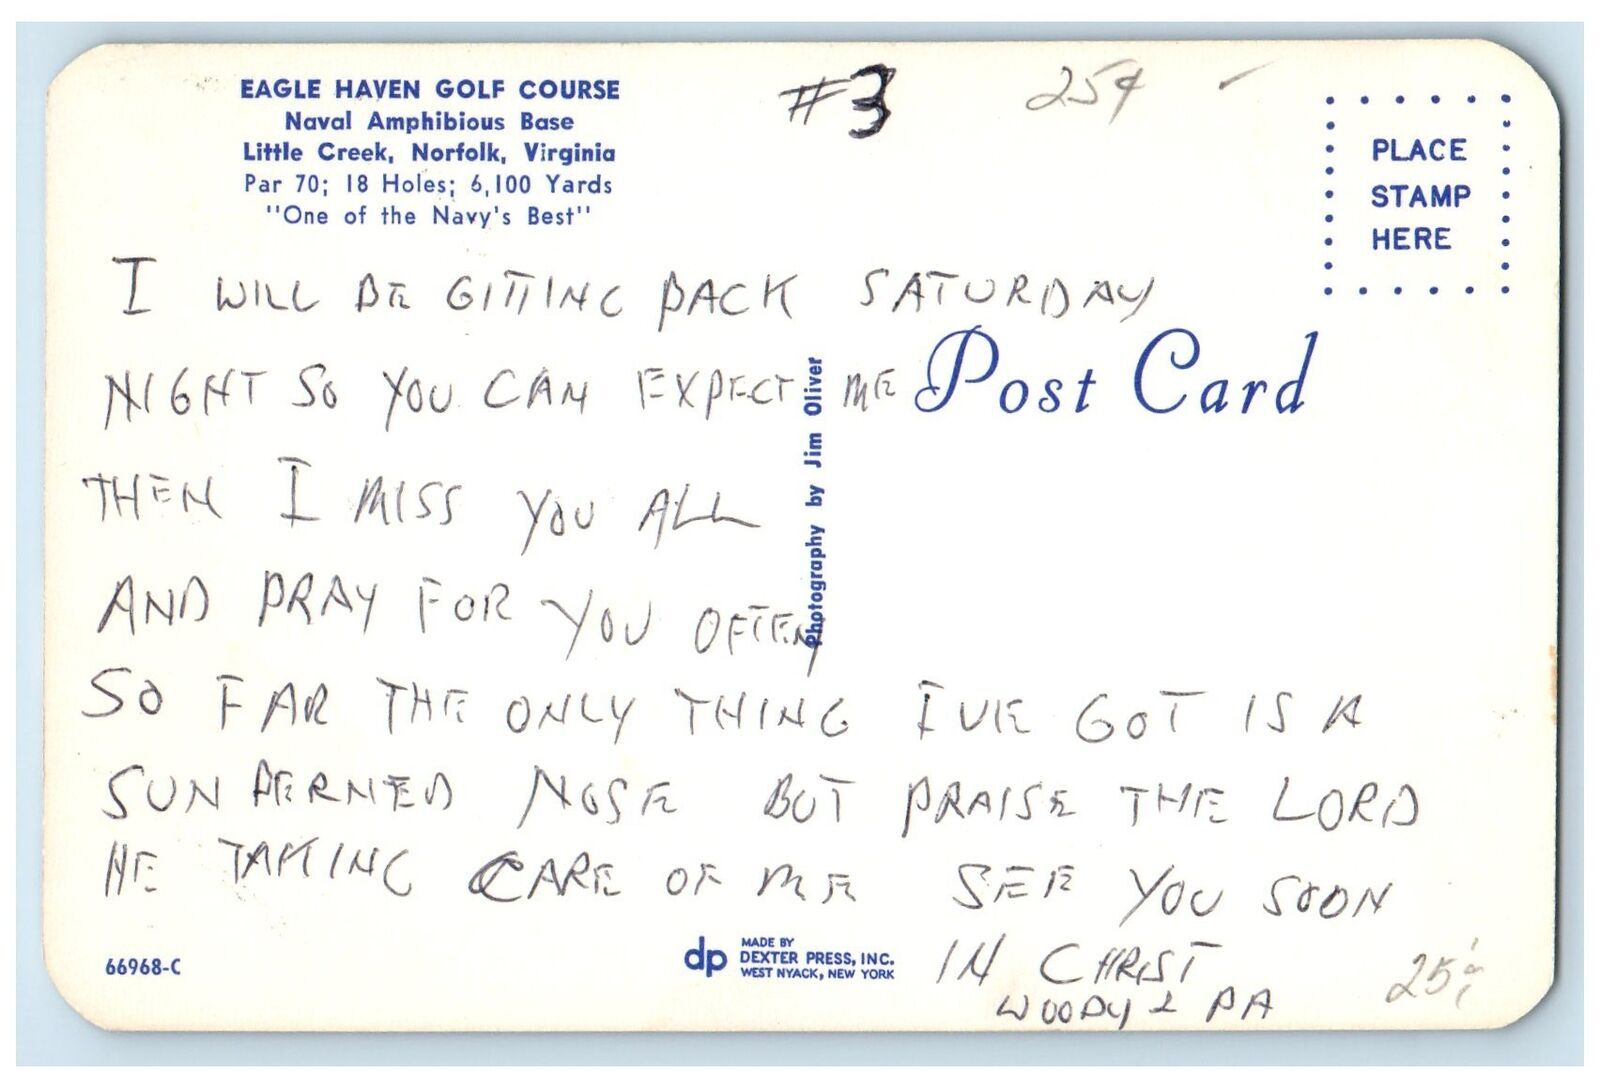 EAGLE HAVEN GOLF COURSE
Naval Amphibious Base
Little Creek, Norfolk, Virginia
Par 70; 18 Holes; 6,100 Yards
"One of the Navy's Best"
#3
25¢
PLACE
STAMP
HERE
Post Card
Photography by Jim Oliver
I WILL BE GITTING BACK SATURDAY
NIGHT SO YOU CAN EXPECT ME
THEN I MISS YOU ALL
AND PRAY FOR YOU OFTEN,
SO FAR THE ONLY THING I'VE GOT IS A
SUN BERNED NOSE BUT PRAISE THE LORD
HE TAKING CARE OF ME SEE YOU SOON
IN CHRIST
WOODY & PA
66968-C
dp
MADE BY
DEXTER PRESS, INC.
WEST NYACK, NEW YORK
25¢